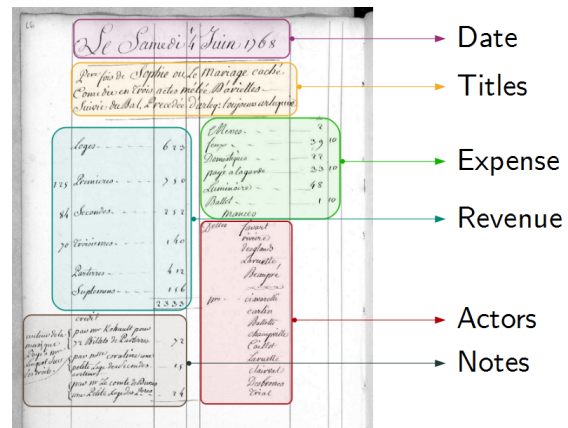 26
Le Samedi 4 Juin 1768
Date
1ere fois de Sophie ou le Mariage caché
Comedie en trois actes mêlée D'ariettes
Suivie du Bal, Precedée d'arleq: toujours arlequin
Titles
Loges 623
125 Premieres 750
84 Secondes 252
70 Troisiemes 140
Parterres 412
Suplemens 156
2333
Revenue
2
feux 39 10
Domestiques 22
payé à la garde 33 10
Luminaire 48
Ballet 1 10
Expense
mances
Delles favart
riviere
desglands
Laruette
Beaupré
Mrs ciavarelli
carlin
Balletti
champville
Caillot
Laruette
clairval
Desbrosses
trial
Actors
credit
par mr Kohault pour
72 Billets de Parterres 72
par
petite Loge des Secondes 15
par Mr Le comte de
une Petite Loge des 24
auteur de la
musique
Notes